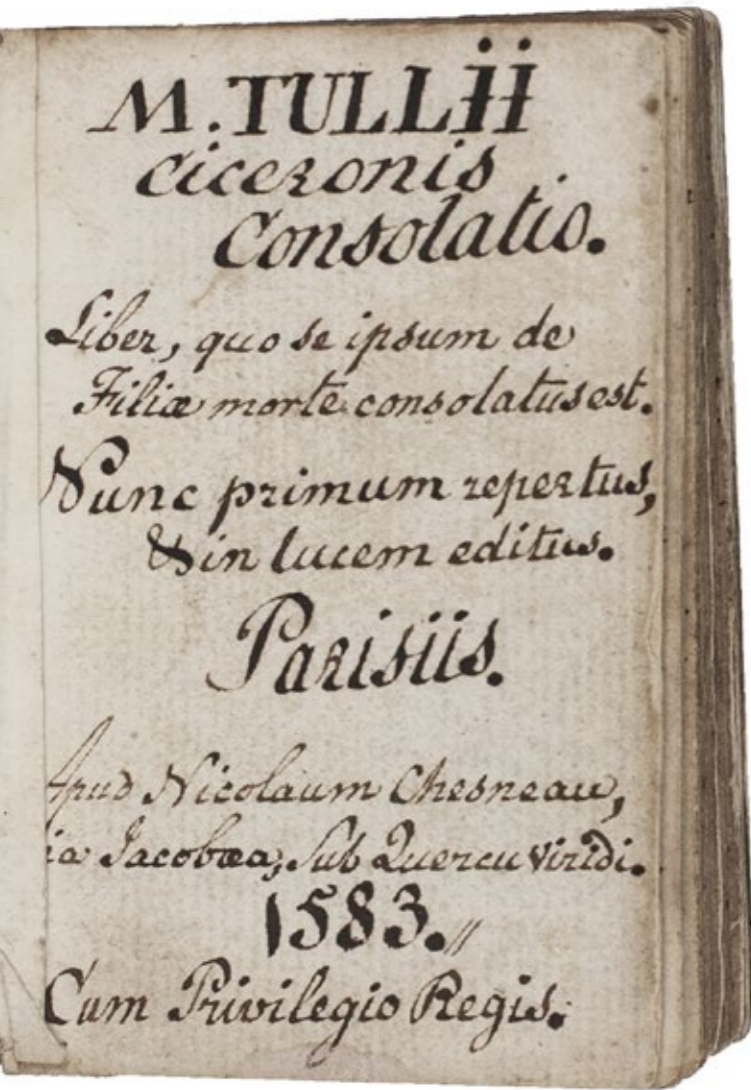 M. TULLII
Ciceronis
Consolatio.
Liber, quo se ipsum de
Filiæ morte consolatus est.
Nunc primum repertus,
& in lucem editus.
Parisiis.
Apud Nicolaum Chesneau,
ia Jacobæa, Sub Quercu viridi.
1583.
Cum Privilegio Regis.